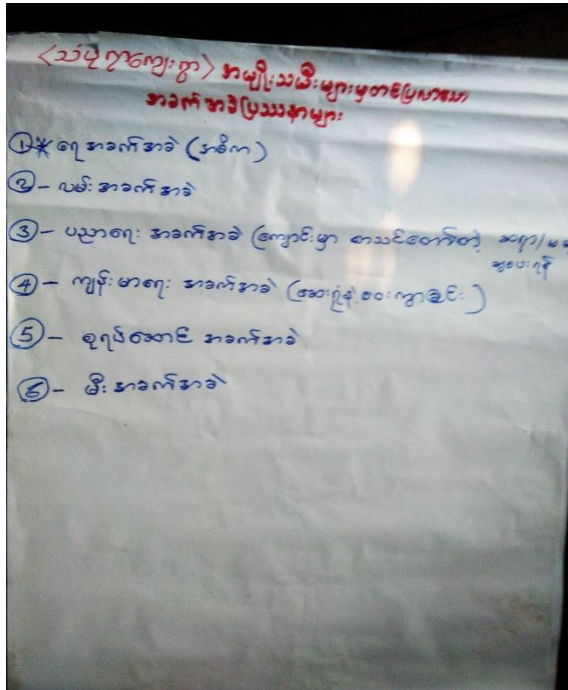 <သံပုရာကျေးရွာ> အမျိုးသမီးများမှတင်ပြလာသော
အခက်အခဲပြဿနာများ
①* ရေအခက်အခဲ (အဓိက)
② - လမ်းအခက်အခဲ
③ - ပညာရေး အခက်အခဲ (ကျောင်းမှာ စာသင်တော်တဲ့ ဆရာ/မ
ဆုပေးရန်
④ - ကျန်းမာရေး အခက်အခဲ (ဆေးရုံနဲ့ဝေးကွာခြင်း)
⑤ - စုရပ်ဆောင် အခက်အခဲ
⑥ - မီးအခက်အခဲ